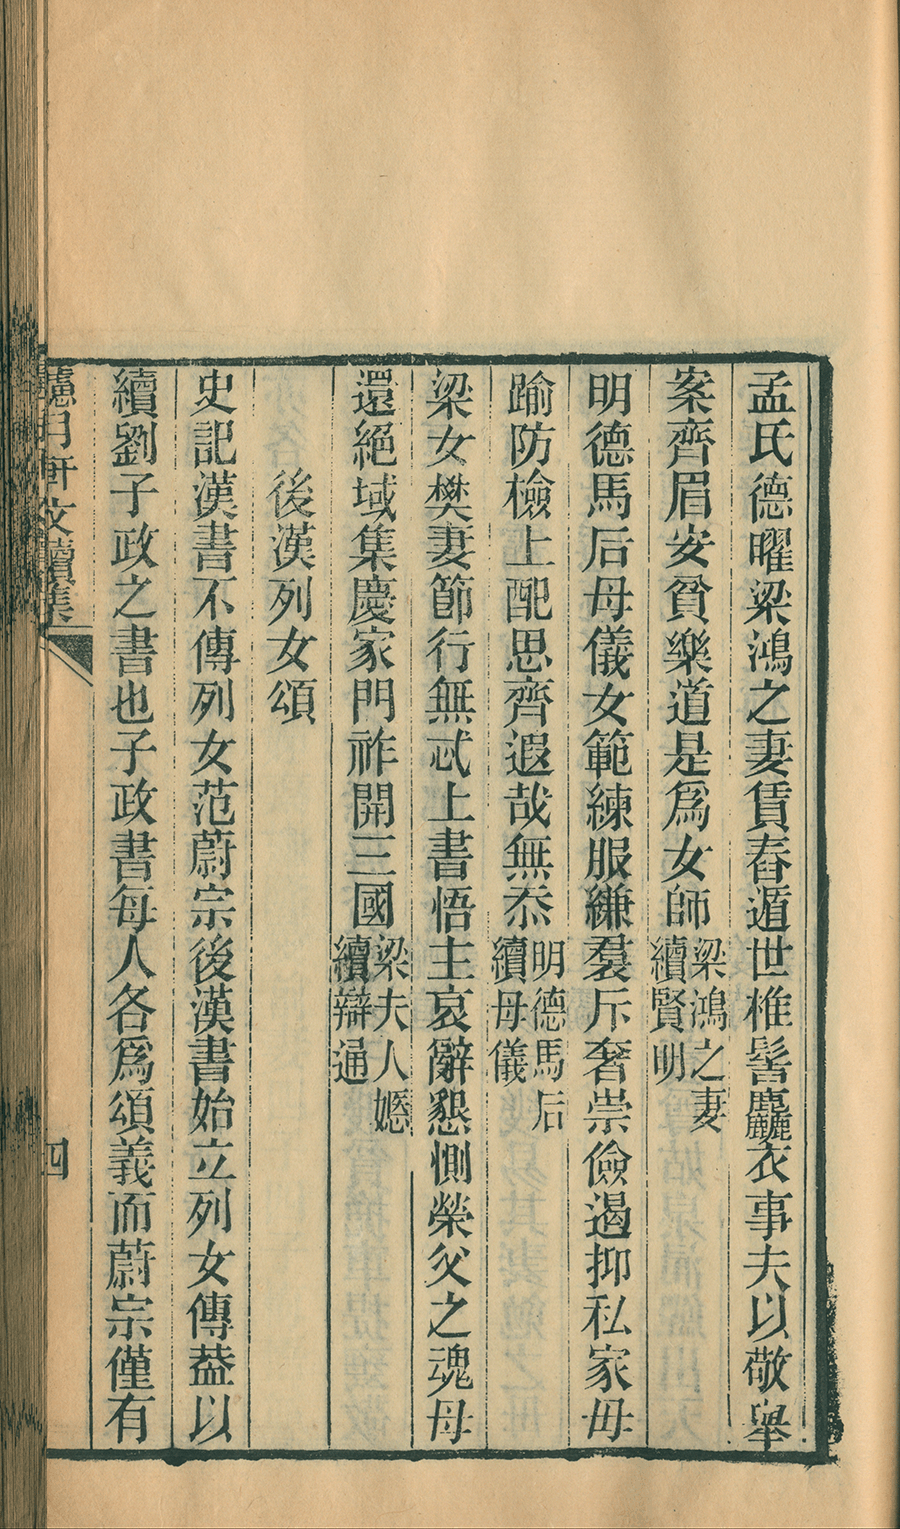 孟氏德曜梁鴻之妻賃舂遁世椎髻麤衣事夫以敬舉
案齊眉安貧樂道是爲女師梁鴻之妻續賢明
明德馬后母儀女範練服縑裠斥奢崇儉遏抑私家毋
踰防檢上配思齊遐哉無忝明德馬后續母儀
梁女樊妻節行無忒上書悟主哀辭懇惻榮父之魂母
還絕域集慶家門祚開三國梁夫人嫕續辯通
後漢列女頌
史記漢書不傳列女范蔚宗後漢書始立列女傳葢以
續劉子政之書也子政書每人各爲頌義而蔚宗僅有
曰軒文續集
四